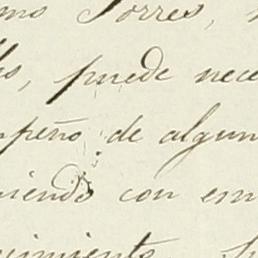 mo Torres,
puede nece
peño de algun
iendo con em
imiento